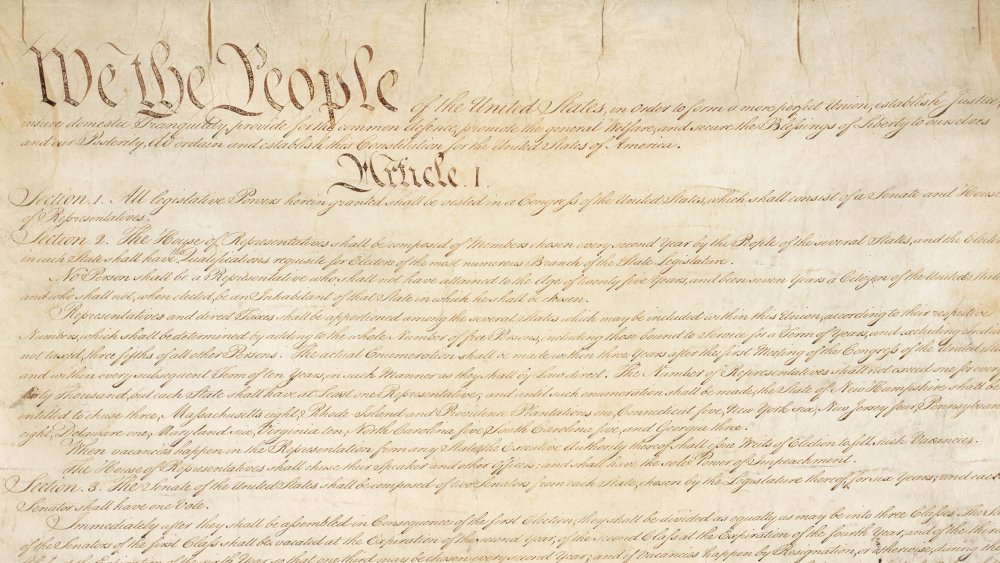 We the People of the United States, in Order to form a more perfect Union, establish Justice,
insure domestic Tranquility, provide for the common defence, promote the general Welfare, and secure the Blessings of Liberty to ourselves
and our Posterity, do ordain and establish this Constitution for the United States of America.
Article. I.
Section. 1. All legislative Powers herein granted shall be vested in a Congress of the United States, which shall consist of a Senate and House
of Representatives.
Section. 2. The House of Representatives shall be composed of Members chosen every second Year by the People of the several States, and the Elect
in each State shall have the Qualifications requisite for Electors of the most numerous Branch of the State Legislature.
No Person shall be a Representative who shall not have attained to the Age of twenty five Years, and been seven Years a Citizen of the United Stat
and who shall not, when elected, be an Inhabitant of that State in which he shall be chosen.
Representatives and direct Taxes shall be apportioned among the several States which may be included within this Union, according to their respective
Numbers, which shall be determined by adding to the whole Number of free Persons, including those bound to Service for a Term of Years, and excluding Indian
not taxed, three fifths of all other Persons. The actual Enumeration shall be made within three Years after the first Meeting of the Congress of the United Stat
and within every subsequent Term of ten Years, in such Manner as they shall by Law direct. The Number of Representatives shall not exceed one for every
thirty Thousand, but each State shall have at Least one Representative; and until such enumeration shall be made, the State of New Hampshire shall be
entitled to chuse three, Massachusetts eight, Rhode-Island and Providence Plantations one, Connecticut five, New-York six, New Jersey four, Pennsylvan
eight, Delaware one, Maryland six, Virginia ten, North Carolina five, South Carolina five, and Georgia three.
When vacancies happen in the Representation from any State, the Executive Authority thereof shall issue Writs of Election to fill such Vacancies.
The House of Representatives shall chuse their Speaker and other Officers; and shall have the sole Power of Impeachment.
Section. 3. The Senate of the United States shall be composed of two Senators from each State, chosen by the Legislature thereof, for six Years; and each
Senator shall have one Vote.
Immediately after they shall be assembled in Consequence of the first Election, they shall be divided as equally as may be into three Classes. The Se
of the Senators of the first Class shall be vacated at the Expiration of the second Year, of the second Class at the Expiration of the fourth Year, and of the third
Year, so that one third may be chosen every second Year; and if Vacancies happen by Resignation, or otherwise, during the